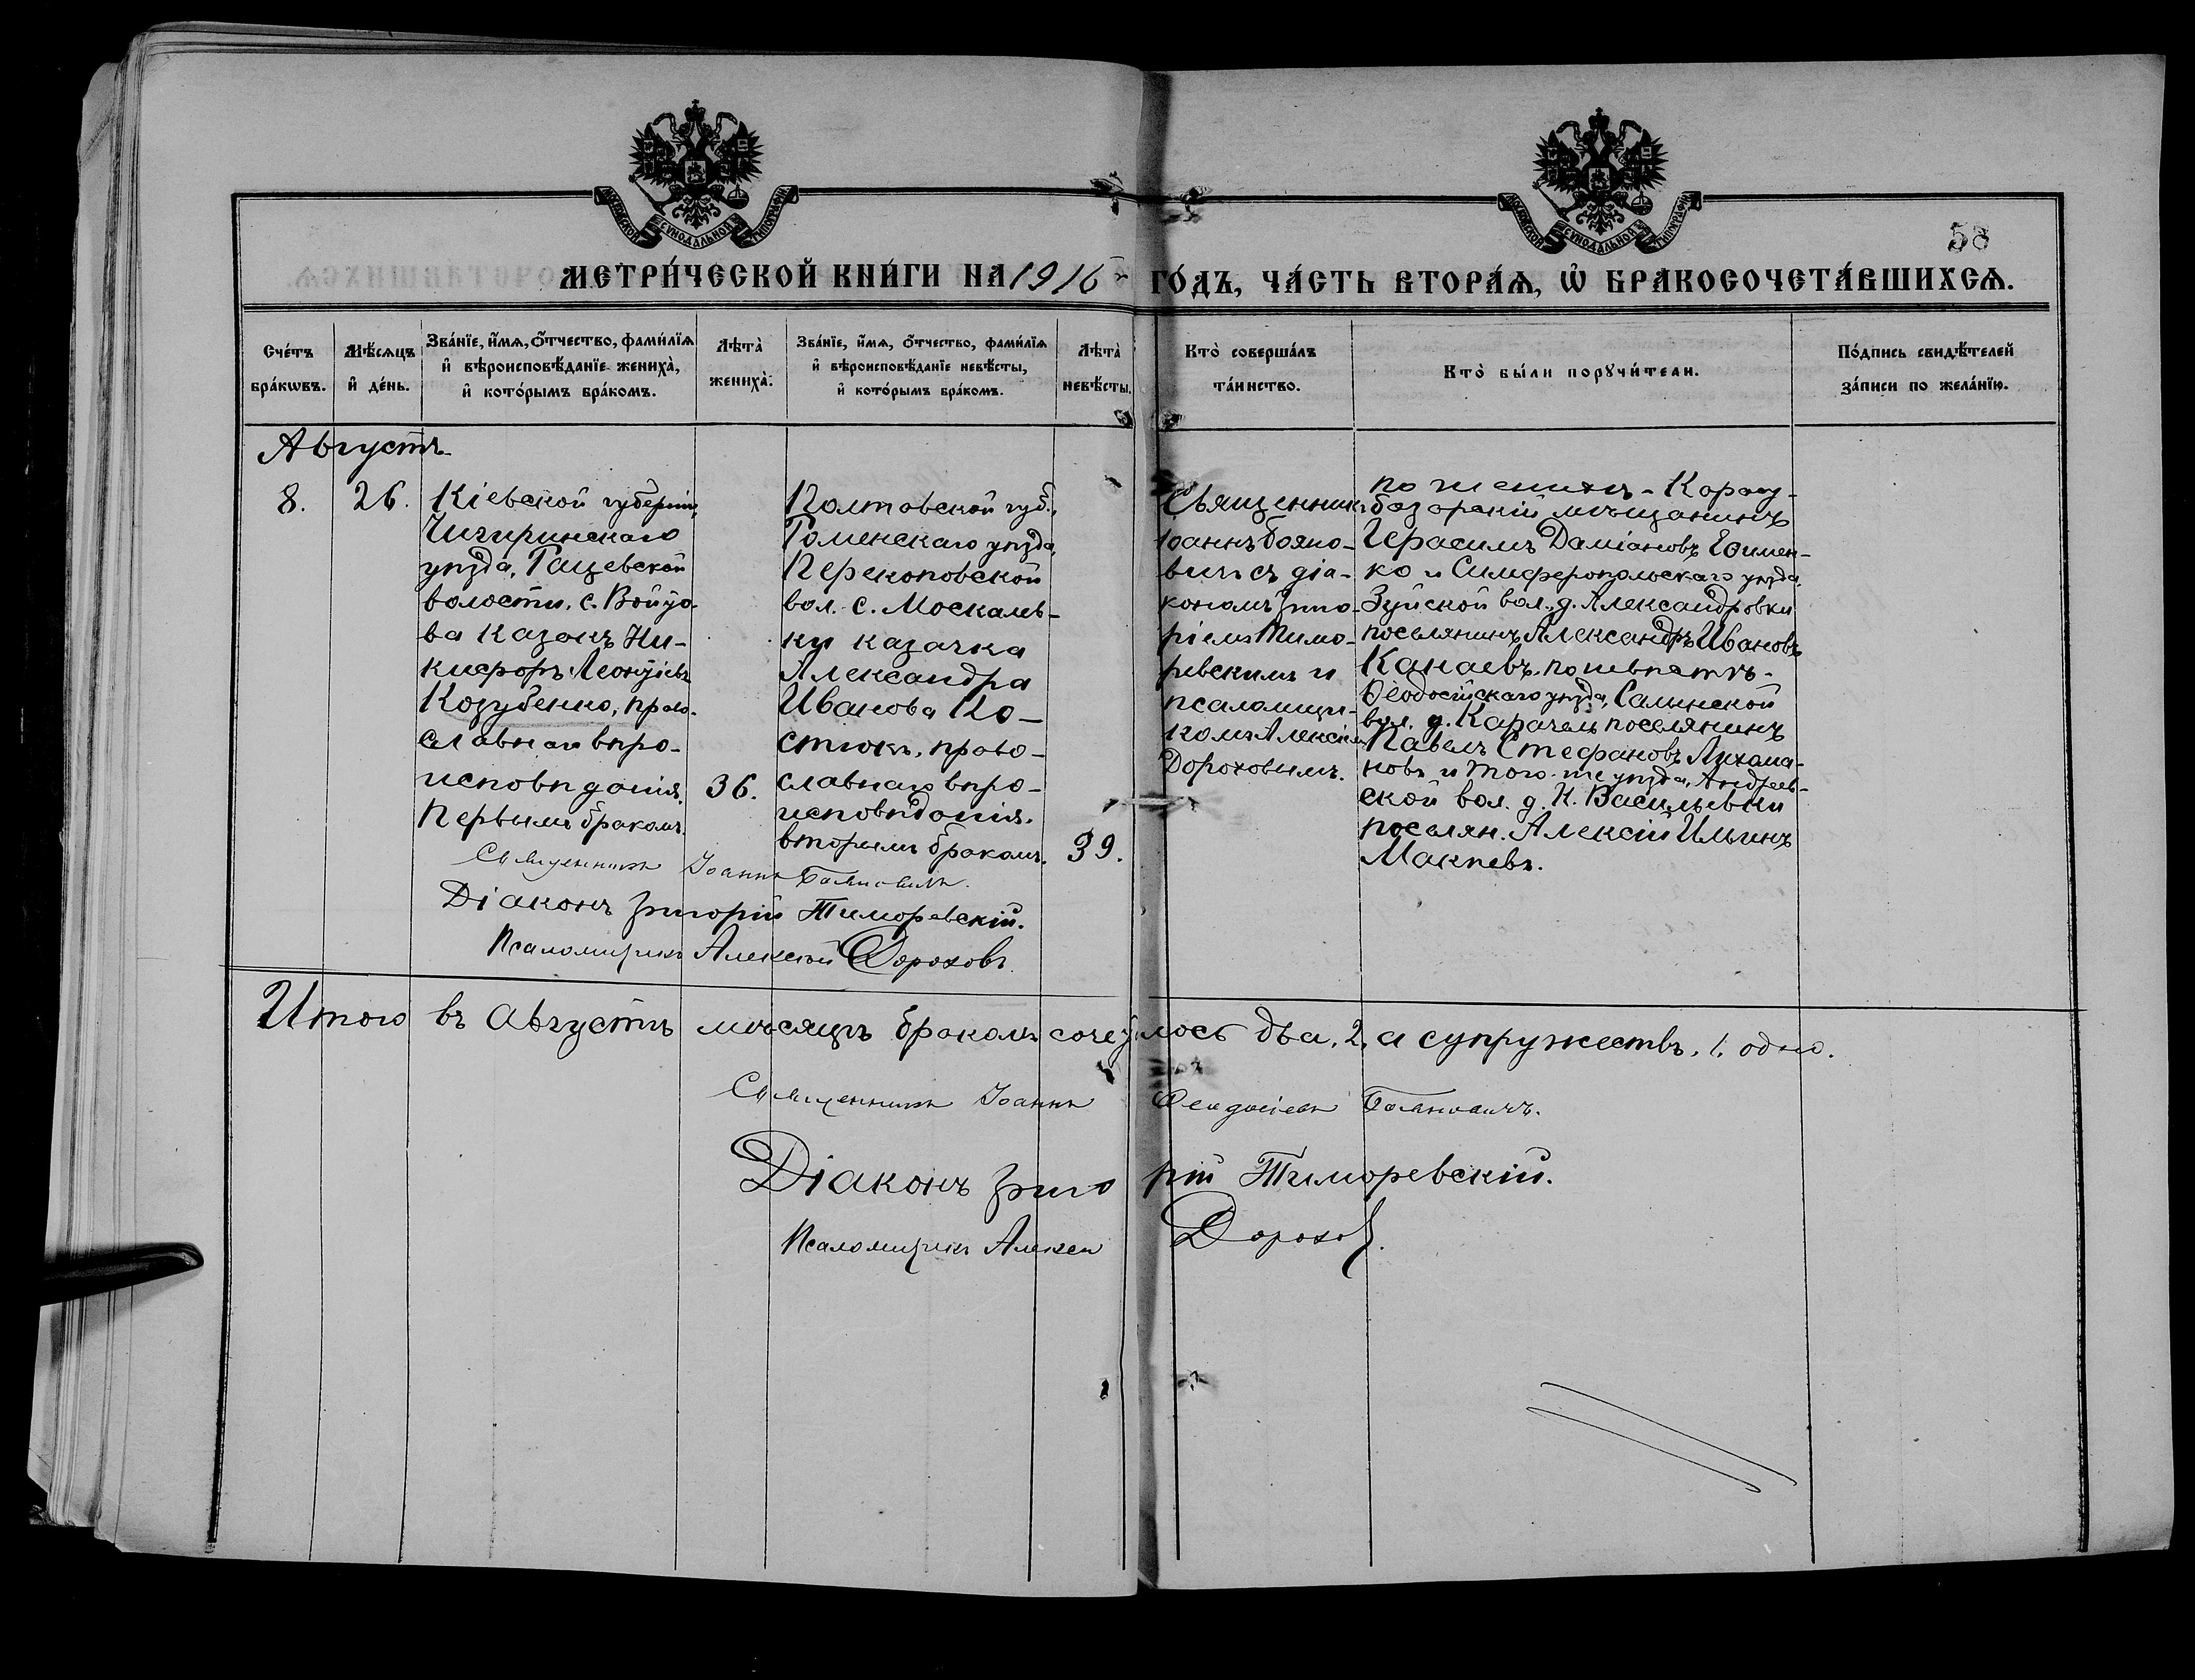 МОСКОВСКОЙ СѴНОДАЛЬНОЙ ТИПОГРАФІИ
МОСКОВСКОЙ СѴНОДАЛЬНОЙ ТИПОГРАФІИ
58
МЕТРИ́ЧЕСКОЙ КНИ́ГИ НА 1916 ГО́ДЪ, ЧА́СТЬ ВТОРА́Ѧ, Ѡ҆ БРАКОСОЧЕТА́ВШИХСѦ.
Сче́тъ бра́кѡвъ.
Мѣ́сѧцъ и҆ де́нь.
Зва́нїе, и҆́мѧ, ѻ҆́тчество, фами́лїѧ и҆ вѣроисповѣ́данїе жениха̀, и҆ кото́рымъ бра́комъ.
Лѣта̀ жениха̀.
Зва́нїе, и҆́мѧ, ѻ҆́тчество, фами́лїѧ и҆ вѣроисповѣ́данїе невѣ́сты, и҆ кото́рымъ бра́комъ.
Лѣта̀ невѣ́сты.
Кто̀ соверша́лъ та́инство.
Кто̀ бы́ли порꙋчи́тели.
По́дпись свидѣ́телей за́писи по жела́нїю.
Августъ
8.
26.
Кіевской губерніи,
Чигиринскаго
уѣзда,
волости, с. Войто-
ва казакъ Ни-
кифоръ Леонтіевъ
Козубенко, право-
славнаго вѣро-
исповѣданія,
первымъ бракомъ.
36.
Полтавской губ.,
Роменскаго уѣзда
Перекоповской
вол. с. Москалев-
ки казачка
Александра
Иванова Ко-
стюкъ, право-
славнаго вѣро-
исповѣданія.
вторымъ бракомъ.
39.
Священникъ
Іоаннъ Бояно-
вичъ съ діа-
кономъ Григо-
ріемъ Тимо-
ревскимъ и
псаломщи-
комъ Алексіемъ
Дороховымъ.
по женихѣ - Карасу-
базарскій мѣщанинъ
Герасимъ Даміановъ Ефимен-
ко и Симферопольскаго уѣзда,
Зуйской вол., д. Александровки
поселянинъ Александръ Ивановъ
Канаевъ. по невѣстѣ -
Ѳеодосійскаго уѣзда, Салынской
вол. д. Карачель поселянинъ
Павелъ Стефановъ Лихома-
новъ и того-же уѣзда, Андреев-
ской вол. д. Н. Васильевки
поселян. Алексій Ильинъ
Макѣевъ.
Священникъ Іоаннъ Бояновичъ.
Діаконъ Григорій Тиморевскій.
Псаломщикъ Алексій Дороховъ.
Итого въ Августѣ мѣсяцѣ бракомъ сочеталось два, 2, а супружествъ, 1, одно.
Священникъ Іоаннъ Ѳеодосіевъ Бояновичъ.
Діаконъ Григорій Тиморевскій.
Псаломщикъ Алексей Дорохов.